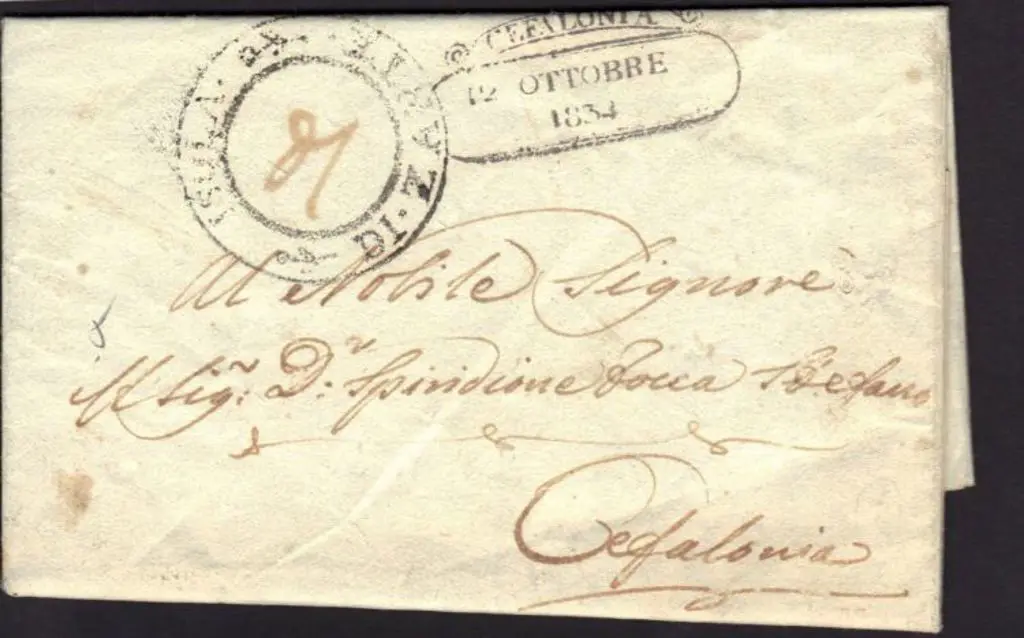 ISOLA DI ZANTE
CEFALONIA
12 OTTOBRE
1834
Al Nobile Signore
Il Sig.r D.r Spiridione Focca Stefano
Cefalonia